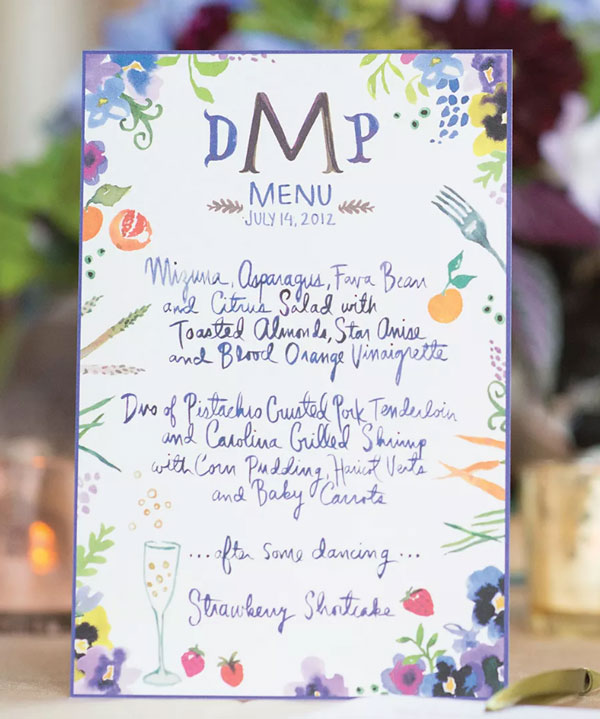 DMP
MENU
JULY 14, 2012
Mizuna, Asparagus, Fava Bean
and Citrus Salad with
Toasted Almonds, Star Anise
and Blood Orange Vinaigrette
Duo of Pistachio Crusted Pork Tenderloin
and Carolina Grilled Shrimp
with Corn Pudding, Haricot Verts
and Baby Carrots
...after some dancing...
Strawberry Shortcake